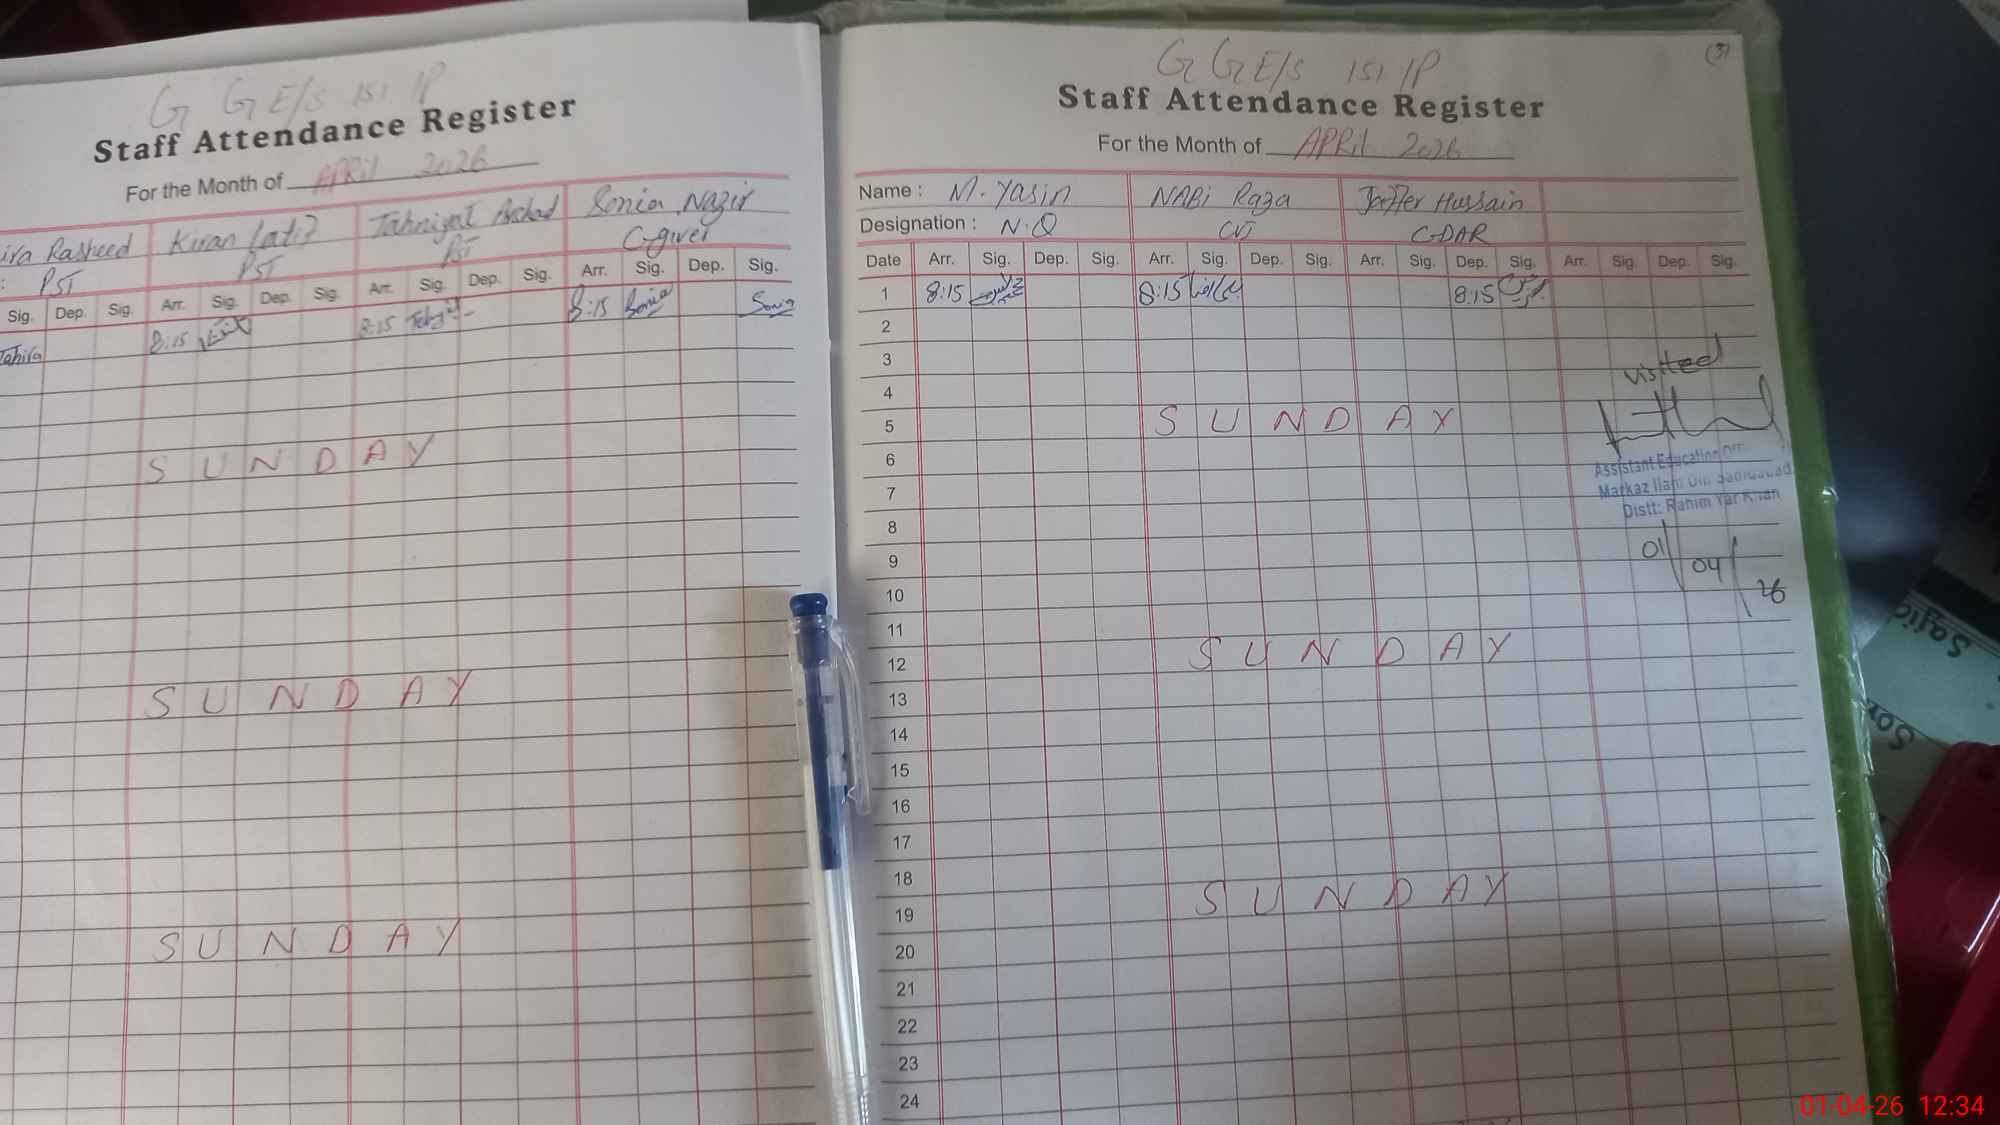 G GE/S 151 /P
Staff Attendance Register
For the Month of APRil 2026
Rasheed Kiran Latif Tahniyat Arshad Sonia Nazir
: PST PST PST C-giver
Sig. Dep. Sig. Arr. Sig. Dep. Sig. Arr. Sig. Dep. Sig. Arr. Sig. Dep. Sig.
Tahira 8:15 8:15 8:15 Sonia Sonia
SUNDAY
SUNDAY
SUNDAY
(3)
G GE/S 151 /P
Staff Attendance Register
For the Month of APRil 2026
Name : M. Yasin NABi Raza Jaffer Hussain
Designation : N.Q
Date Arr. Sig. Dep. Sig. Arr. Sig. Dep. Sig. Arr. Sig. Dep. Sig. Arr. Sig. Dep. Sig.
1 8:15 8:15 8:15
2
3
4
5 SUNDAY
6
7
8
9
10
11
12 SUNDAY
13
14
15
16
17
18
19 SUNDAY
20
21
22
23
24
visited
Assistant Education
Markaz
Distt: Rahim Yar Khan
01/04/26
Sajid
01-04-26 12:34